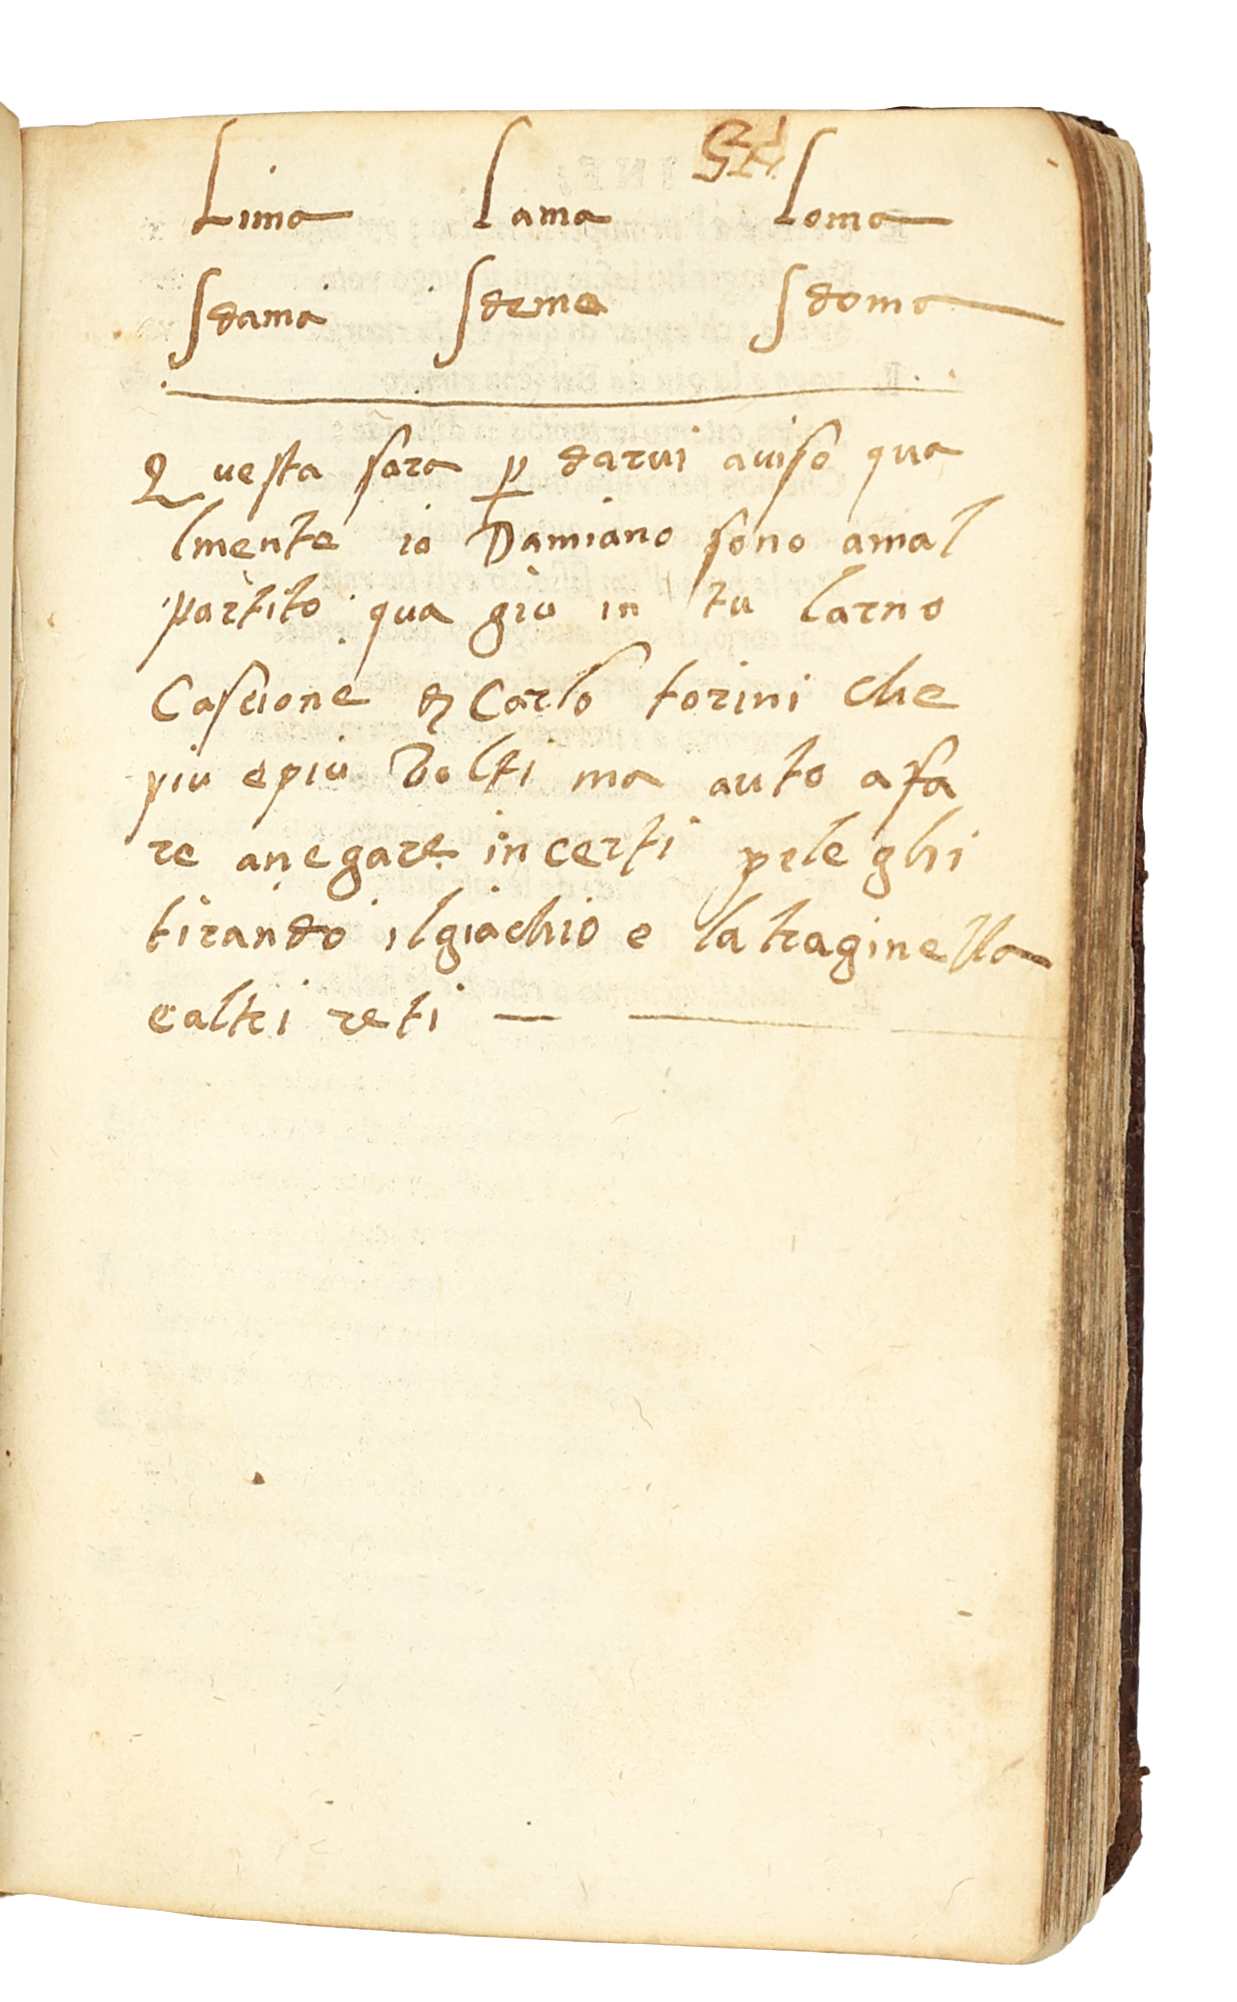 Lima lama loma
sdama sdeme sdoma
Questa sara p darui auiso qua
lmente io Damiano sono amal
partito qua giu in tu larno
Cascione & Carlo torini che
piu epiu volti ma auto afa
re anegare incerti peleghi
tirando ilgiachio e la traginella
ealtri reti